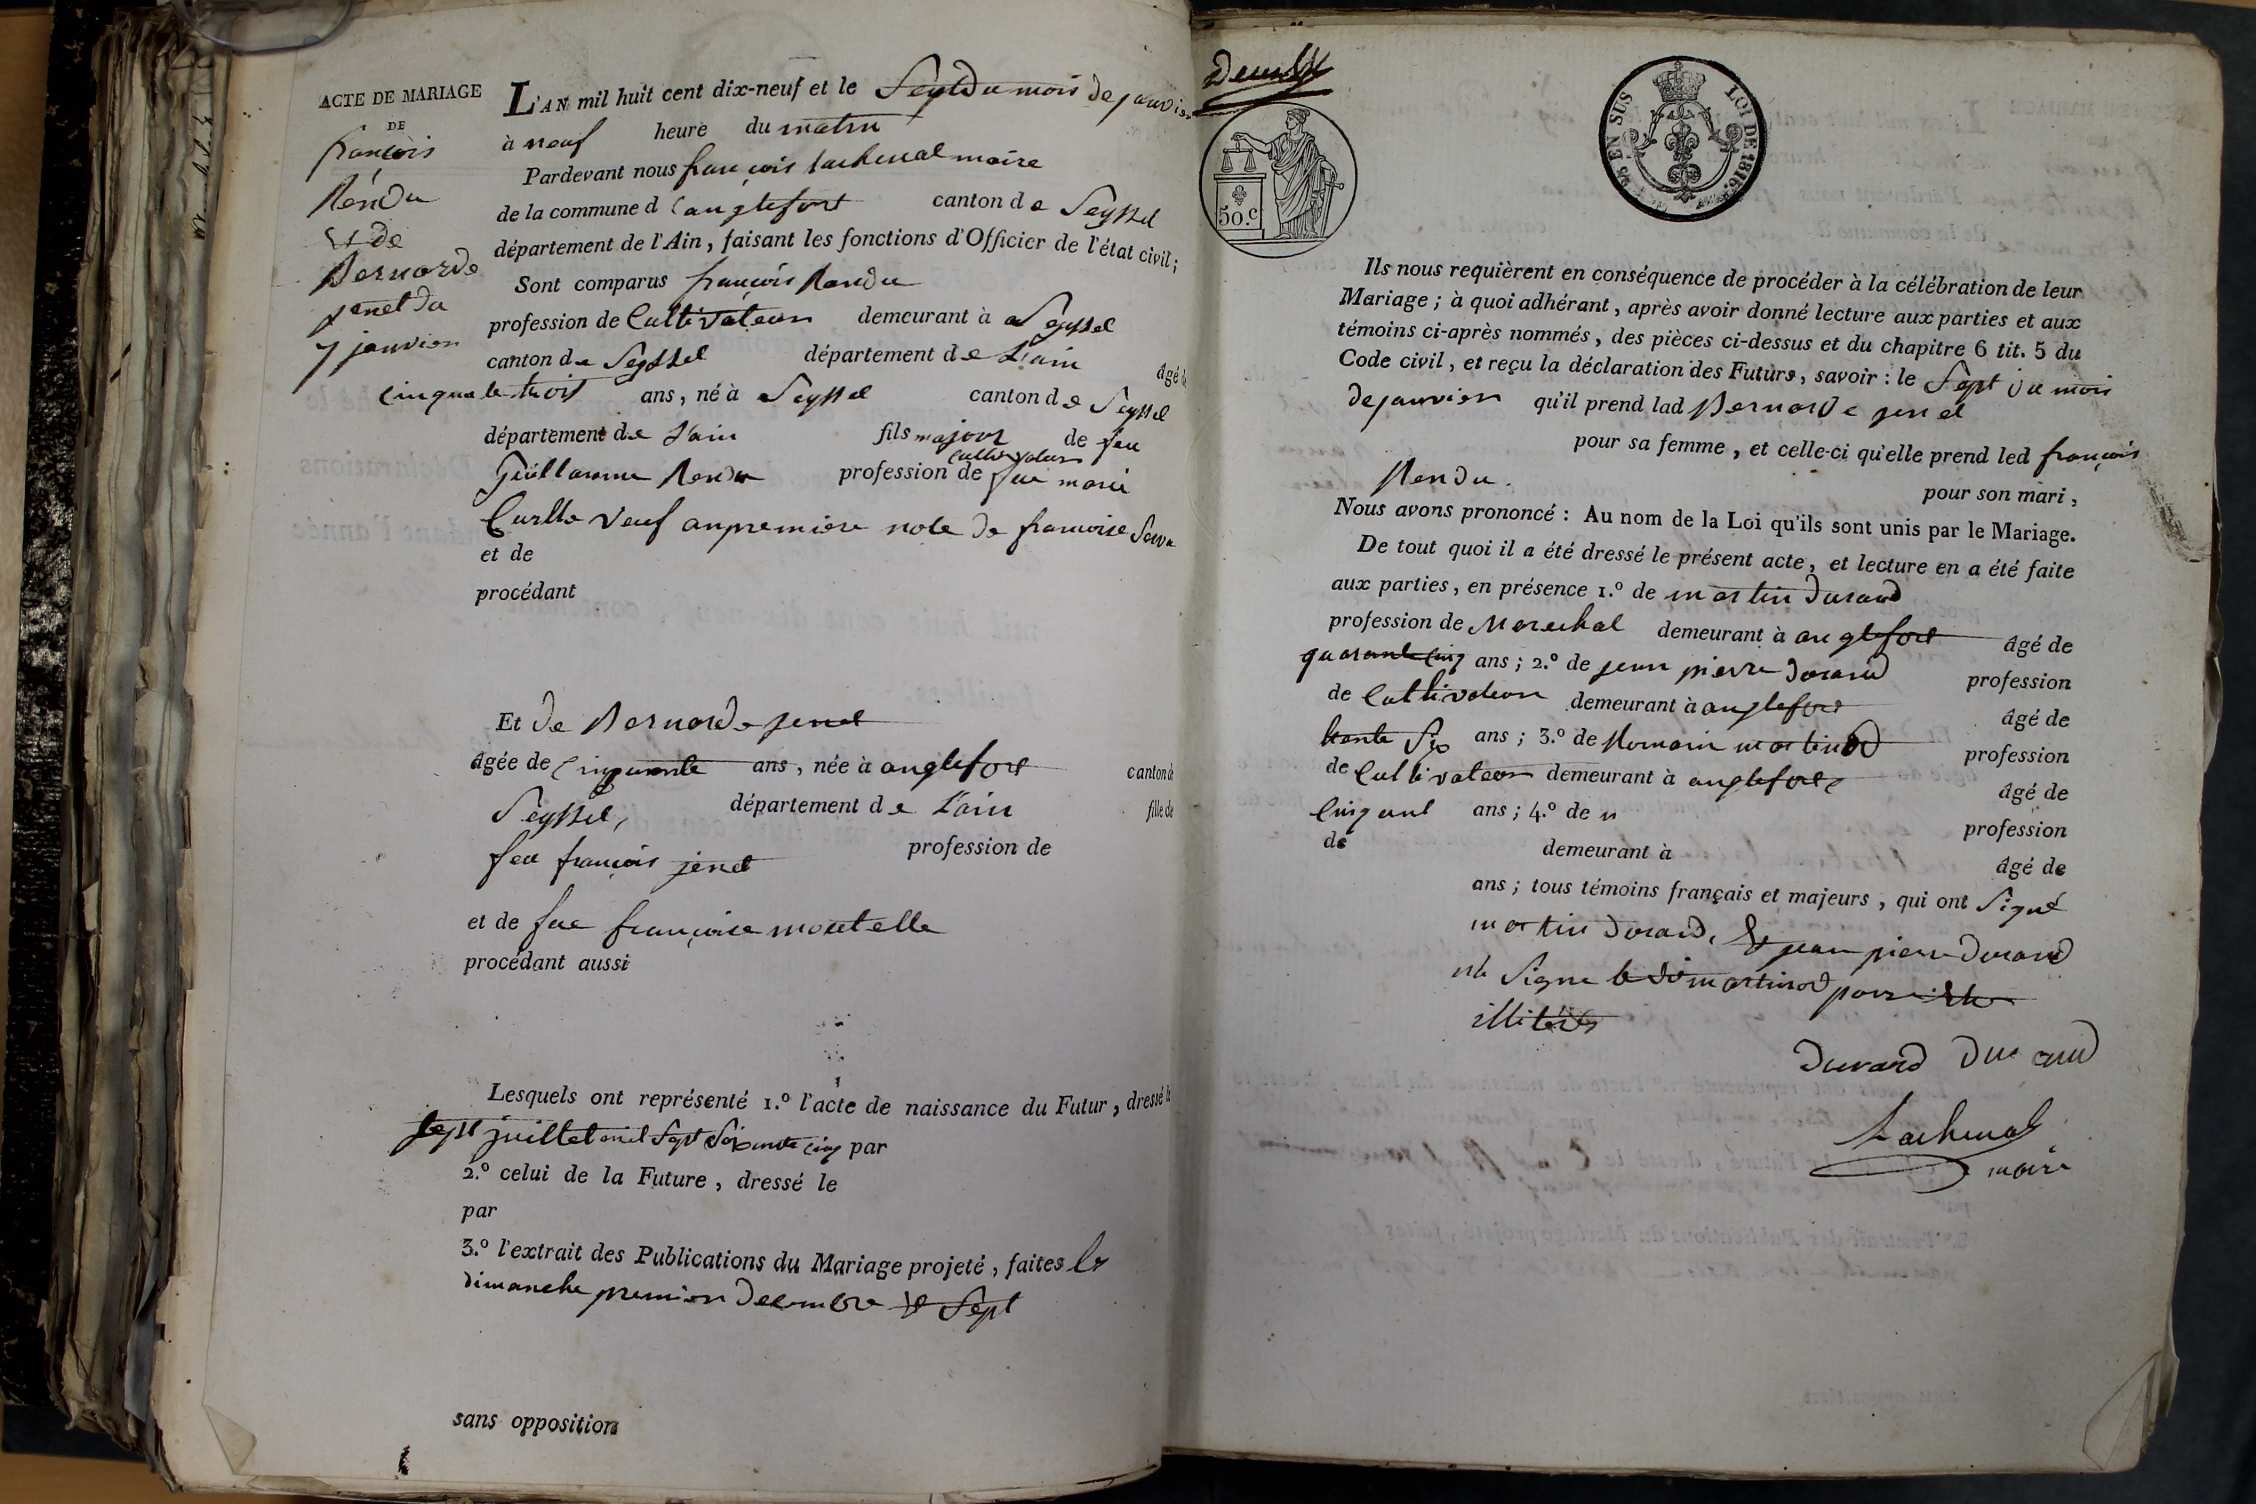 ACTE DE MARIAGE
DE
françois
Rendu
Et de
Bernarde
jenet du
7 janvier
L'AN mil huit cent dix-neuf et le Sept du mois de janvier
à neuf heure du matin
Pardevant nous françois Lachenal maire
de la commune d anglefort canton de Seyssel
département de l'Ain, faisant les fonctions d'Officier de l'état civil;
Sont comparus françois Rendu
profession de Cultivateur demeurant à Seyssel
canton de Seyssel département de L'ain âgé de
cinquante trois ans, né à Seyssel canton de Seyssel
département de L'ain fils majeur de feu
Guillaume Rendu profession de cultivateur fue marie
veuf en premiere note de francoise
et de
procédant
Et de Bernarde jenet
âgée de Cinquante ans, née à anglefort canton de
Seyssel, département de L'ain fille de
feu françois jenet profession de
et de fue françoise montelle
procédant aussi
Lesquels ont représenté 1.º l'acte de naissance du Futur, dressé le
Sept juillet mil Sept Soixante cinq par
2.º celui de la Future, dressé le
par
3.º l'extrait des Publications du Mariage projeté, faites le
dimanche premier decembre & Sept
sans opposition
50 c.
25 EN SUS LOI DE 1816
Ils nous requièrent en conséquence de procéder à la célébration de leur
Mariage; à quoi adhérant, après avoir donné lecture aux parties et aux
témoins ci-après nommés, des pièces ci-dessus et du chapitre 6 tit. 5 du
Code civil, et reçu la déclaration des Futurs, savoir: le Sept du mois
de janvier qu'il prend lad Bernarde jenet
pour sa femme, et celle-ci qu'elle prend led françois
Rendu. pour son mari,
Nous avons prononcé: Au nom de la Loi qu'ils sont unis par le Mariage.
De tout quoi il a été dressé le présent acte, et lecture en a été faite
aux parties, en présence 1.º de martin durand
profession de Marechal demeurant à anglefort âgé de
quarante cinq ans; 2.º de jean pierre durand profession
de Cultivateur demeurant à anglefort âgé de
trente Six ans; 3.º de Romain martinod profession
de Cultivateur demeurant à anglefort âgé de
Cinquant ans; 4.º de profession
de demeurant à âgé de
ans; tous témoins français et majeurs, qui ont Signé
martin durand, & jean pierre durand
Signe le dit martinod pour
illiterés
Durand Durand
Lachenal
maire